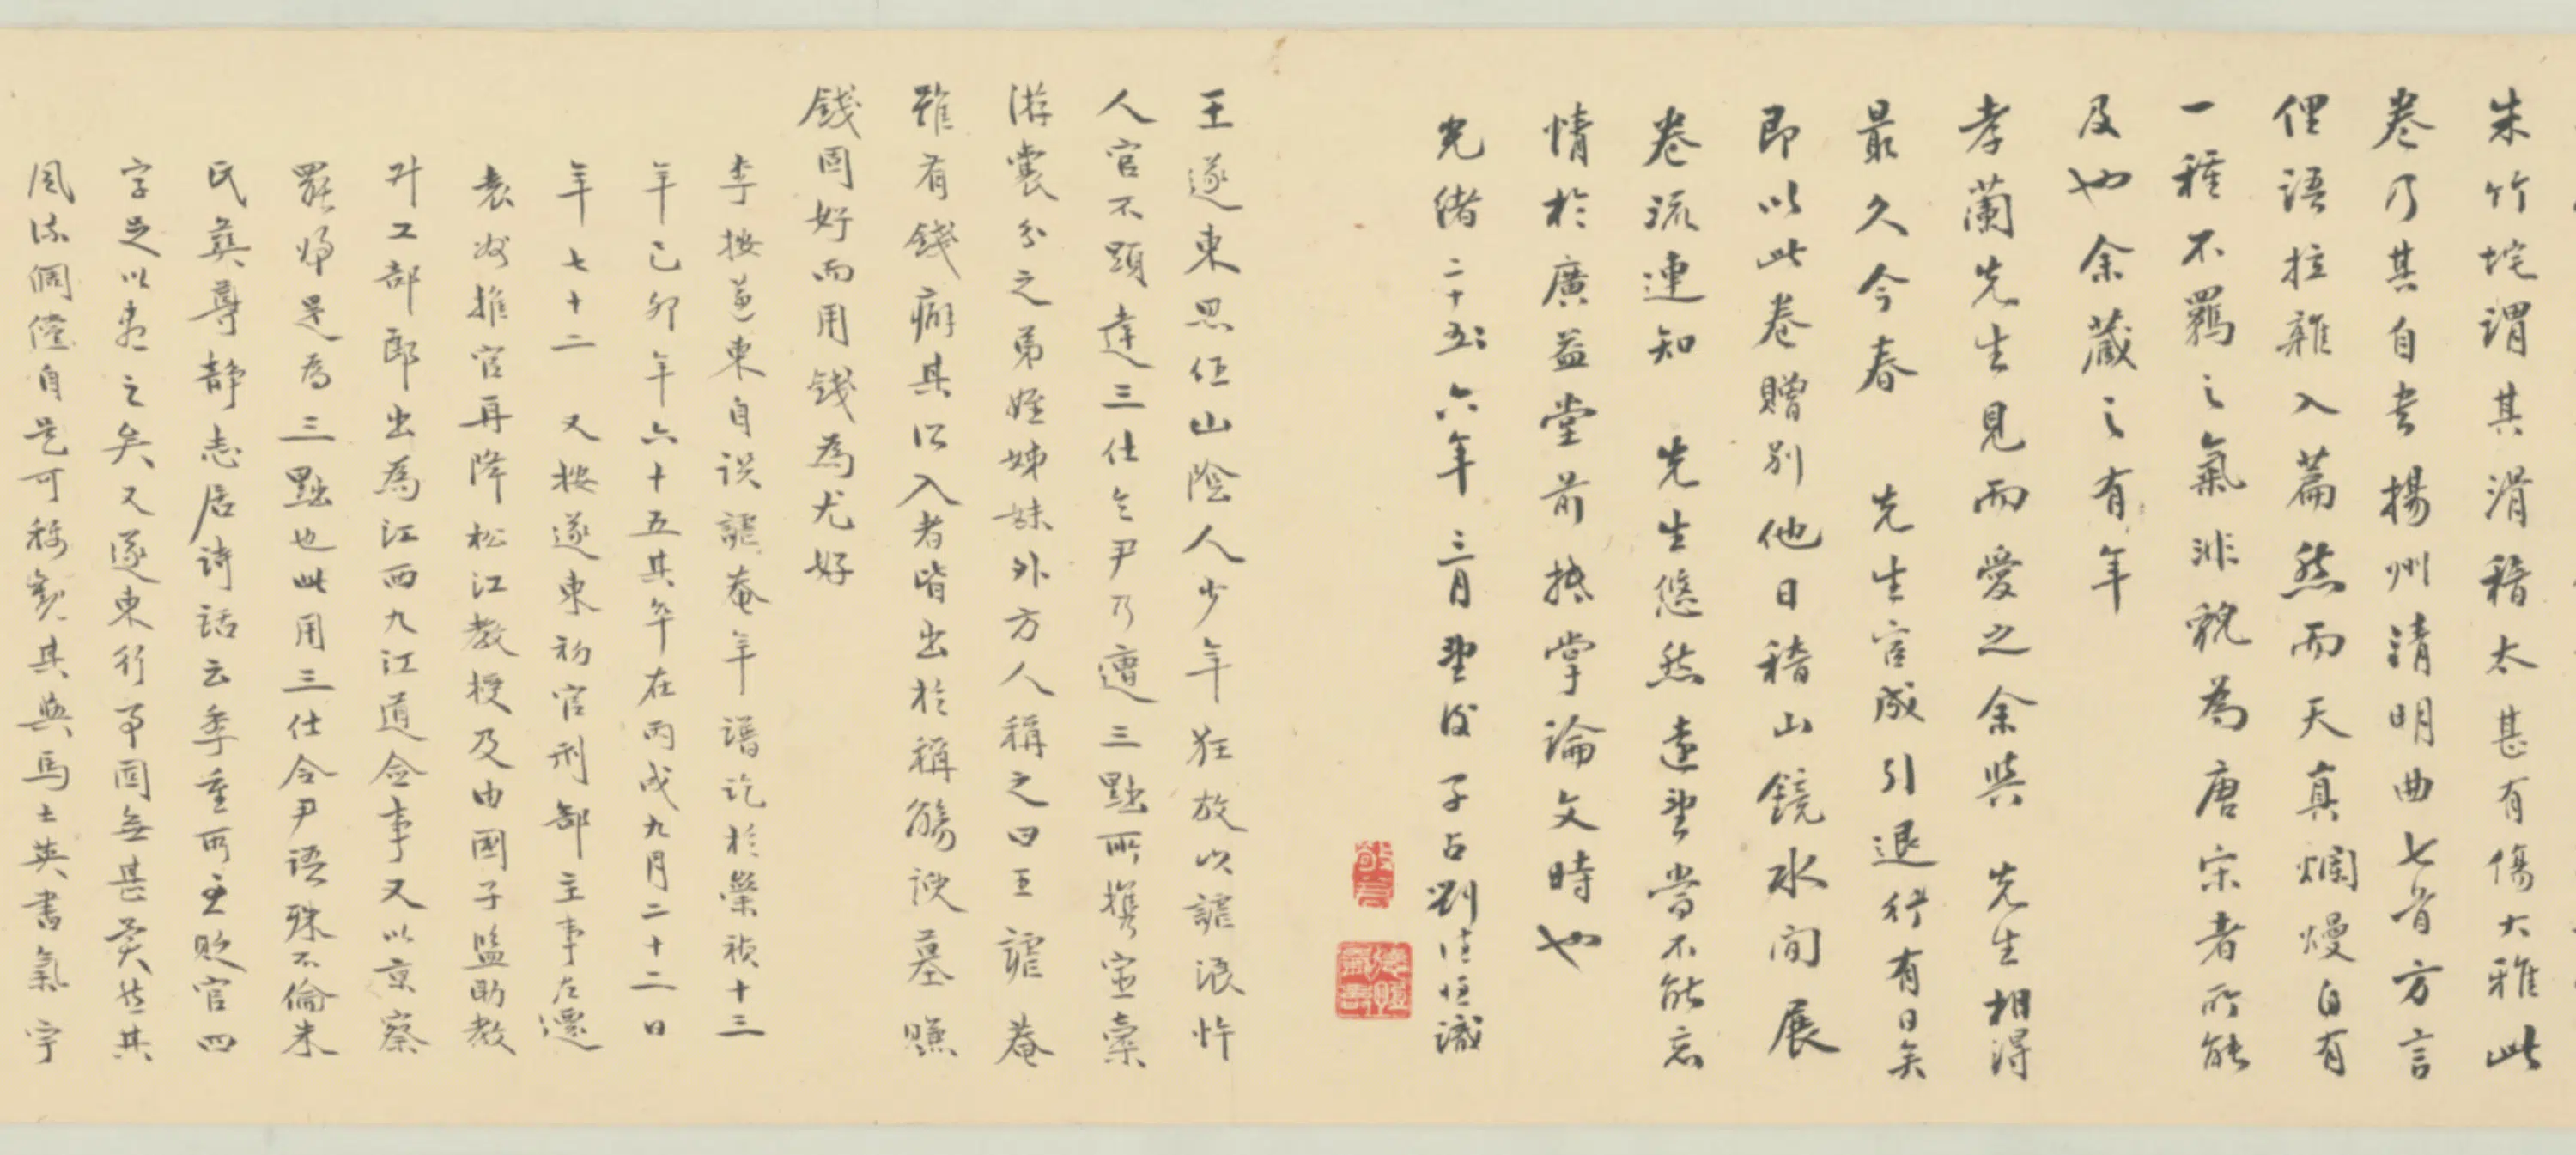 朱竹垞謂其滑稽太甚有傷大雅此
卷乃其自書揚州清明曲七首方言
俚語拉雜入篇然而天真爛熳自有
一種不羈之氣非貌為唐宋者所能
及也余藏之有年
孝蘭先生見而愛之余與先生相得
最久今春先生官成引退行有日矣
即以此卷贈別他日稽山鏡水間展
卷流連知先生悠然遠望當不能忘
情於廣益堂前抵掌論文時也
光緒二十六年三月望後子占劉識
王遂東思任山陰人少年狂放以謔浪忤
人官不顯達三仕令尹乃遭三黜所攜宦橐
游囊分之弟姪姊妹外方人稱之曰王謔菴
雖有錢癖其所入者皆出於稱觴諛墓賺
錢固好而用錢為尤好
李按遂東自誤謔菴年譜訖於崇禎十三
年己卯年六十五其卒在丙戌九月二十二日
年七十二又按遂東初官刑部主事左遷
袁州推官再降松江教授及由國子監助教
升工部郎出為江西九江道僉事又以京察
罷歸是為三黜也此用三仕令尹語殊不倫朱
氏彝尊靜志居詩話云季重所至貶官四
字足以盡之矣又遂東行事固無甚異然其
風流倜儻自是可稱觀其與馬士英書氣宇